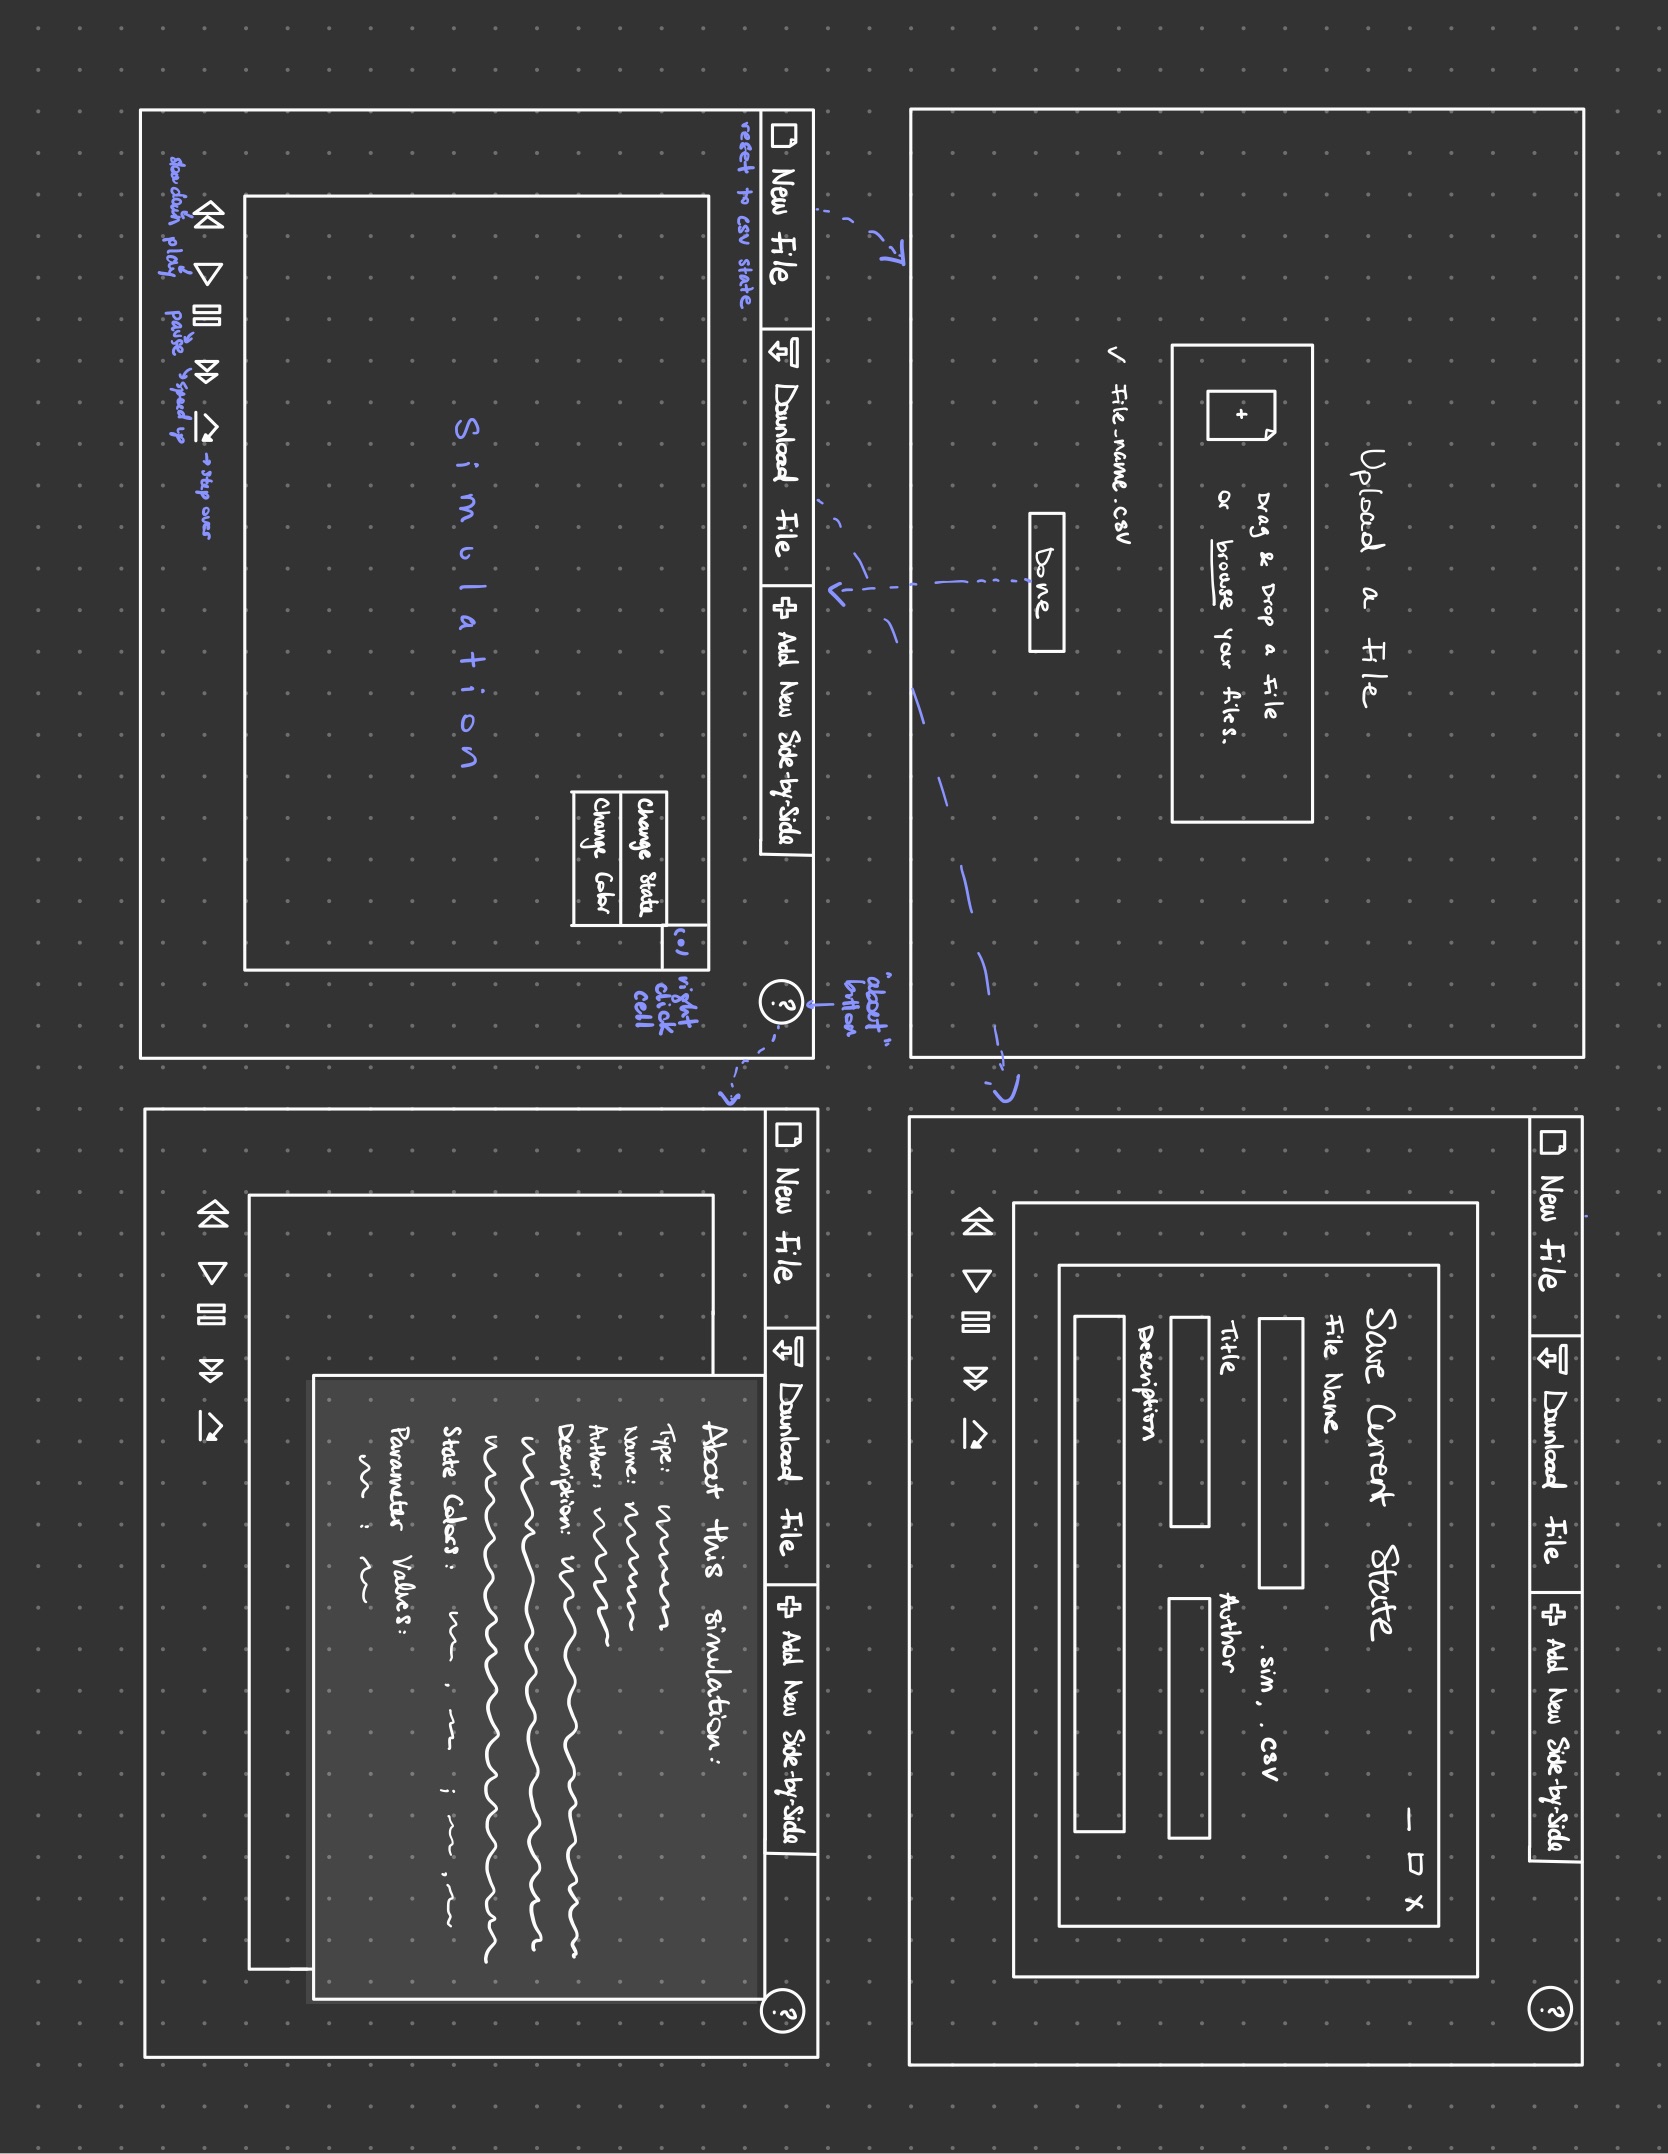 Upload a File
+
Drag & Drop a File
or browse your files.
✓ File-name.csv
Done
New File
Download File
Add New Side-by-Side
?
Save Current State
— X
File Name
.sim, .csv
Title
Author
Description
"about"
button
New File
Download File
Add New Side-by-Side
?
reset to csv state
(0)
right
click
cell
Change State
Change Color
Simulation
slow down
play
pause
speed up
→ step over
New File
Download File
Add New Side-by-Side
?
About this simulation:
Type:
Name:
Author:
Description:
State Colors: , ; ,
Parameter Values:
: